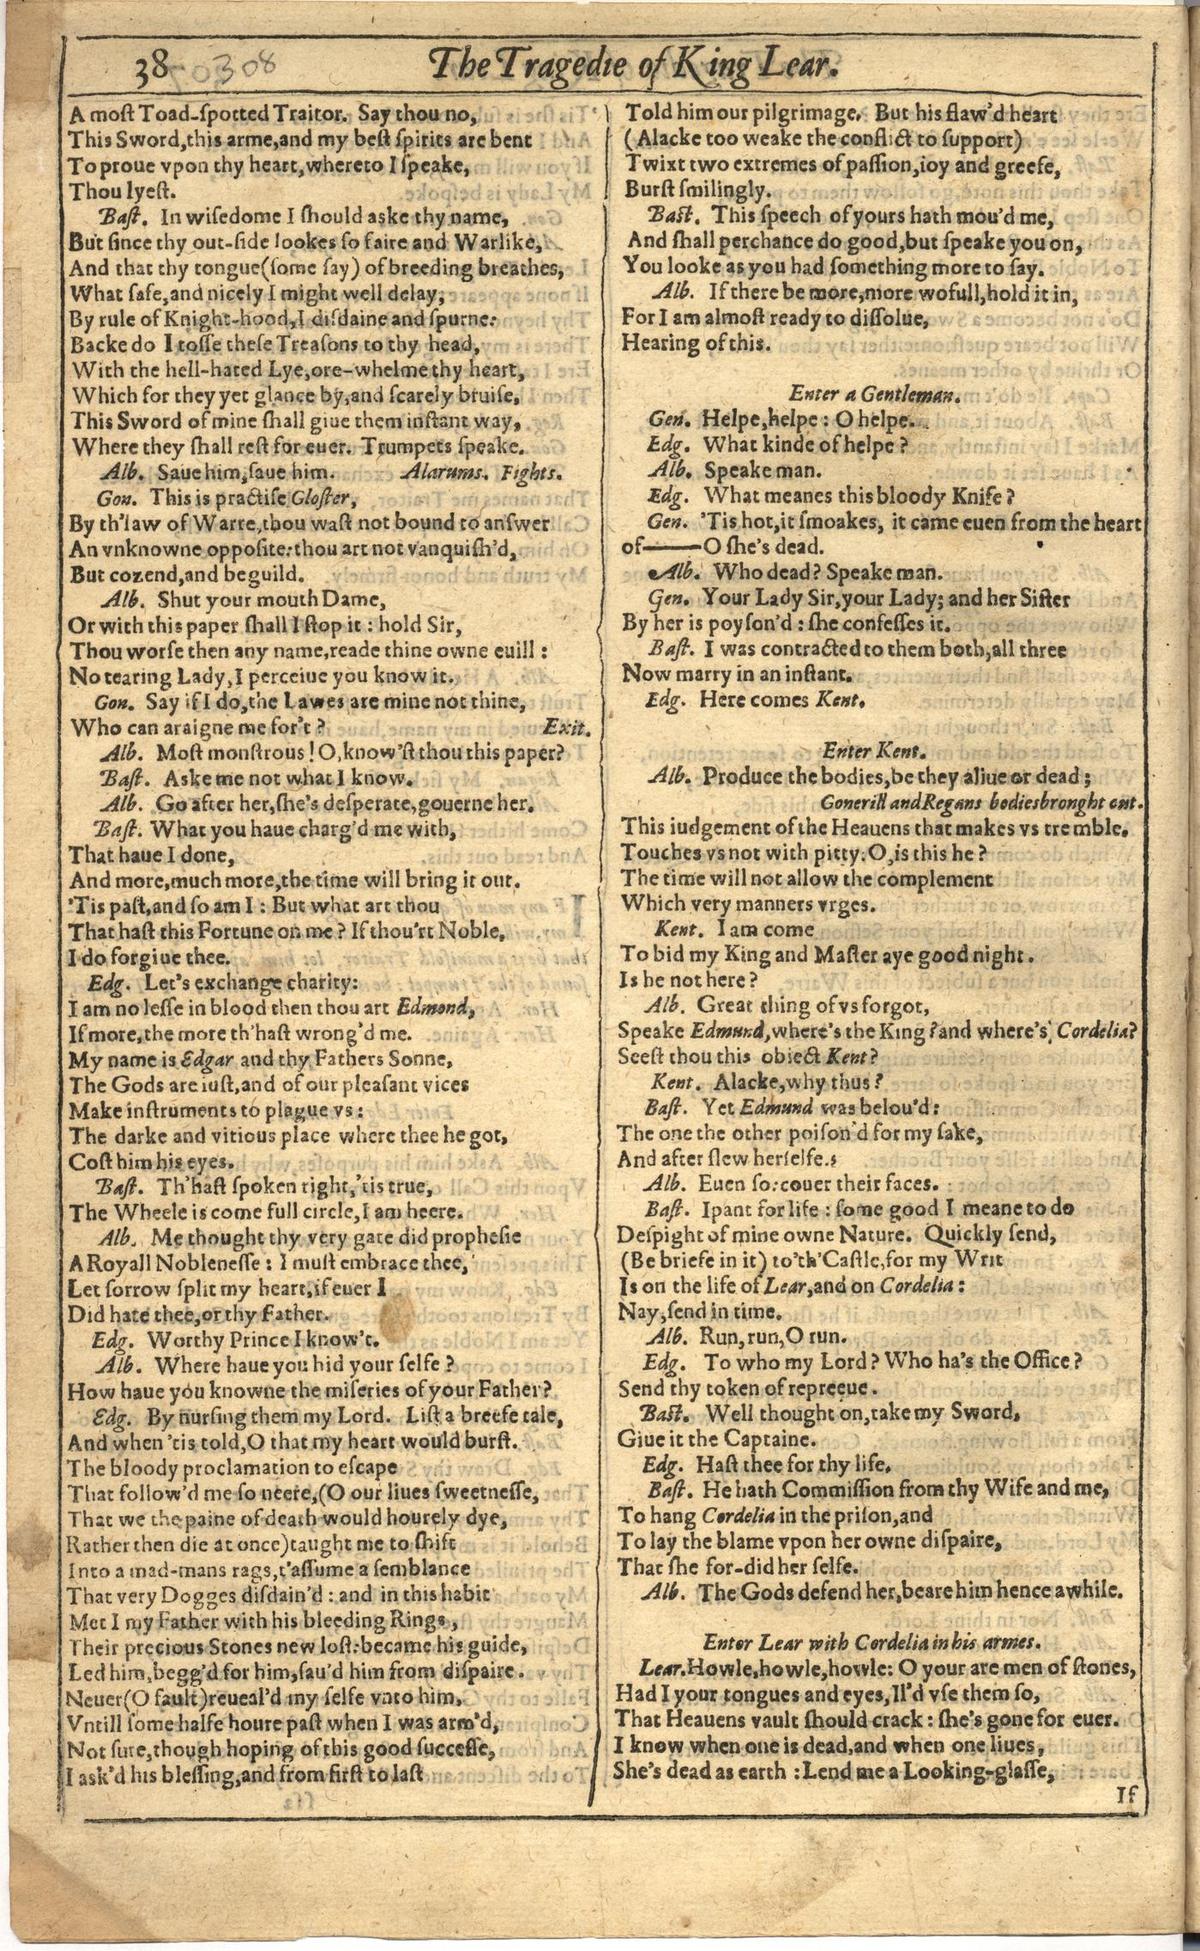 38 50308 The Tragedie of King Lear.
A most Toad-spotted Traitor. Say thou no,
This Sword, this arme, and my best spirits are bent
To proue vpon thy heart, whereto I speake,
Thou lyest.
Bast. In wisedome I should aske thy name,
But since thy out-side lookes so faire and Warlike,
And that thy tongue (some say) of breeding breathes,
What safe, and nicely I might well delay,
By rule of Knight-hood, I disdaine and spurne:
Backe do I tosse these Treasons to thy head,
With the hell-hated Lye, ore-whelme thy heart,
Which for they yet glance by, and scarely bruise,
This Sword of mine shall giue them instant way,
Where they shall rest for euer. Trumpets speake.
Alb. Saue him, saue him. Alarums. Fights.
Gon. This is practise Gloster,
By th'law of Warre, thou wast not bound to answer
An vnknowne opposite: thou art not vanquish'd,
But cozend, and beguild.
Alb. Shut your mouth Dame,
Or with this paper shall I stop it: hold Sir,
Thou worse then any name, reade thine owne euill:
No tearing Lady, I perceiue you know it.
Gon. Say if I do, the Lawes are mine not thine,
Who can araigne me for't? Exit.
Alb. Most monstrous! O, know'st thou this paper?
Bast. Aske me not what I know.
Alb. Go after her, she's desperate, gouerne her.
Bast. What you haue charg'd me with,
That haue I done,
And more, much more, the time will bring it out.
'Tis past, and so am I: But what art thou
That hast this Fortune on me? If thou'rt Noble,
I do forgiue thee.
Edg. Let's exchange charity:
I am no lesse in blood then thou art Edmond,
If more, the more th'hast wrong'd me.
My name is Edgar and thy Fathers Sonne,
The Gods are iust, and of our pleasant vices
Make instruments to plague vs:
The darke and vitious place where thee he got,
Cost him his eyes.
Bast. Th'hast spoken right, 'tis true,
The Wheele is come full circle, I am heere.
Alb. Me thought thy very gate did prophesie
A Royall Noblenesse: I must embrace thee,
Let sorrow split my heart, if euer I
Did hate thee, or thy Father.
Edg. Worthy Prince I know't.
Alb. Where haue you hid your selfe?
How haue you knowne the miseries of your Father?
Edg. By nursing them my Lord. List a breefe tale,
And when 'tis told, O that my heart would burst.
The bloody proclamation to escape
That follow'd me so neere, (O our liues sweetnesse,
That we the paine of death would hourely dye,
Rather then die at once) taught me to shift
Into a mad-mans rags, t'assume a semblance
That very Dogges disdain'd: and in this habit
Met I my Father with his bleeding Rings,
Their precious Stones new lost: became his guide,
Led him, begg'd for him, sau'd him from dispaire.
Neuer (O fault) reueal'd my selfe vnto him,
Vntill some halfe houre past when I was arm'd,
Not sure, though hoping of this good successe,
I ask'd his blessing, and from first to last
Told him our pilgrimage. But his flaw'd heart
(Alacke too weake the conflict to support)
Twixt two extremes of passion, ioy and greefe,
Burst smilingly.
Bast. This speech of yours hath mou'd me,
And shall perchance do good, but speake you on,
You looke as you had something more to say.
Alb. If there be more, more wofull, hold it in,
For I am almost ready to dissolue,
Hearing of this.
Enter a Gentleman.
Gen. Helpe, helpe: O helpe.
Edg. What kinde of helpe?
Alb. Speake man.
Edg. What meanes this bloody Knife?
Gen. 'Tis hot, it smoakes, it came euen from the heart
of——O she's dead.
Alb. Who dead? Speake man.
Gen. Your Lady Sir, your Lady; and her Sister
By her is poyson'd: she confesses it.
Bast. I was contracted to them both, all three
Now marry in an instant.
Edg. Here comes Kent.
Enter Kent.
Alb. Produce the bodies, be they aliue or dead;
Gonerill and Regans bodies brought out.
This iudgement of the Heauens that makes vs tremble.
Touches vs not with pitty: O, is this he?
The time will not allow the complement
Which very manners vrges.
Kent. I am come
To bid my King and Master aye good night.
Is he not here?
Alb. Great thing of vs forgot,
Speake Edmund, where's the King? and where's Cordelia?
Seest thou this obiect Kent?
Kent. Alacke, why thus?
Bast. Yet Edmund was belou'd:
The one the other poison'd for my sake,
And after slew herselfe.
Alb. Euen so: couer their faces.
Bast. I pant for life: some good I meane to do
Despight of mine owne Nature. Quickly send,
(Be briefe in it) to'th'Castle, for my Writ
Is on the life of Lear, and on Cordelia:
Nay, send in time.
Alb. Run, run, O run.
Edg. To who my Lord? Who ha's the Office?
Send thy token of repreeue.
Bast. Well thought on, take my Sword,
Giue it the Captaine.
Edg. Hast thee for thy life.
Bast. He hath Commission from thy Wife and me,
To hang Cordelia in the prison, and
To lay the blame vpon her owne dispaire,
That she for-did her selfe.
Alb. The Gods defend her, beare him hence awhile.
Enter Lear with Cordelia in his armes.
Lear. Howle, howle, howle: O your are men of stones,
Had I your tongues and eyes, Il'd vse them so,
That Heauens vault should crack: she's gone for euer.
I know when one is dead, and when one liues,
She's dead as earth: Lend me a Looking-glasse,
If